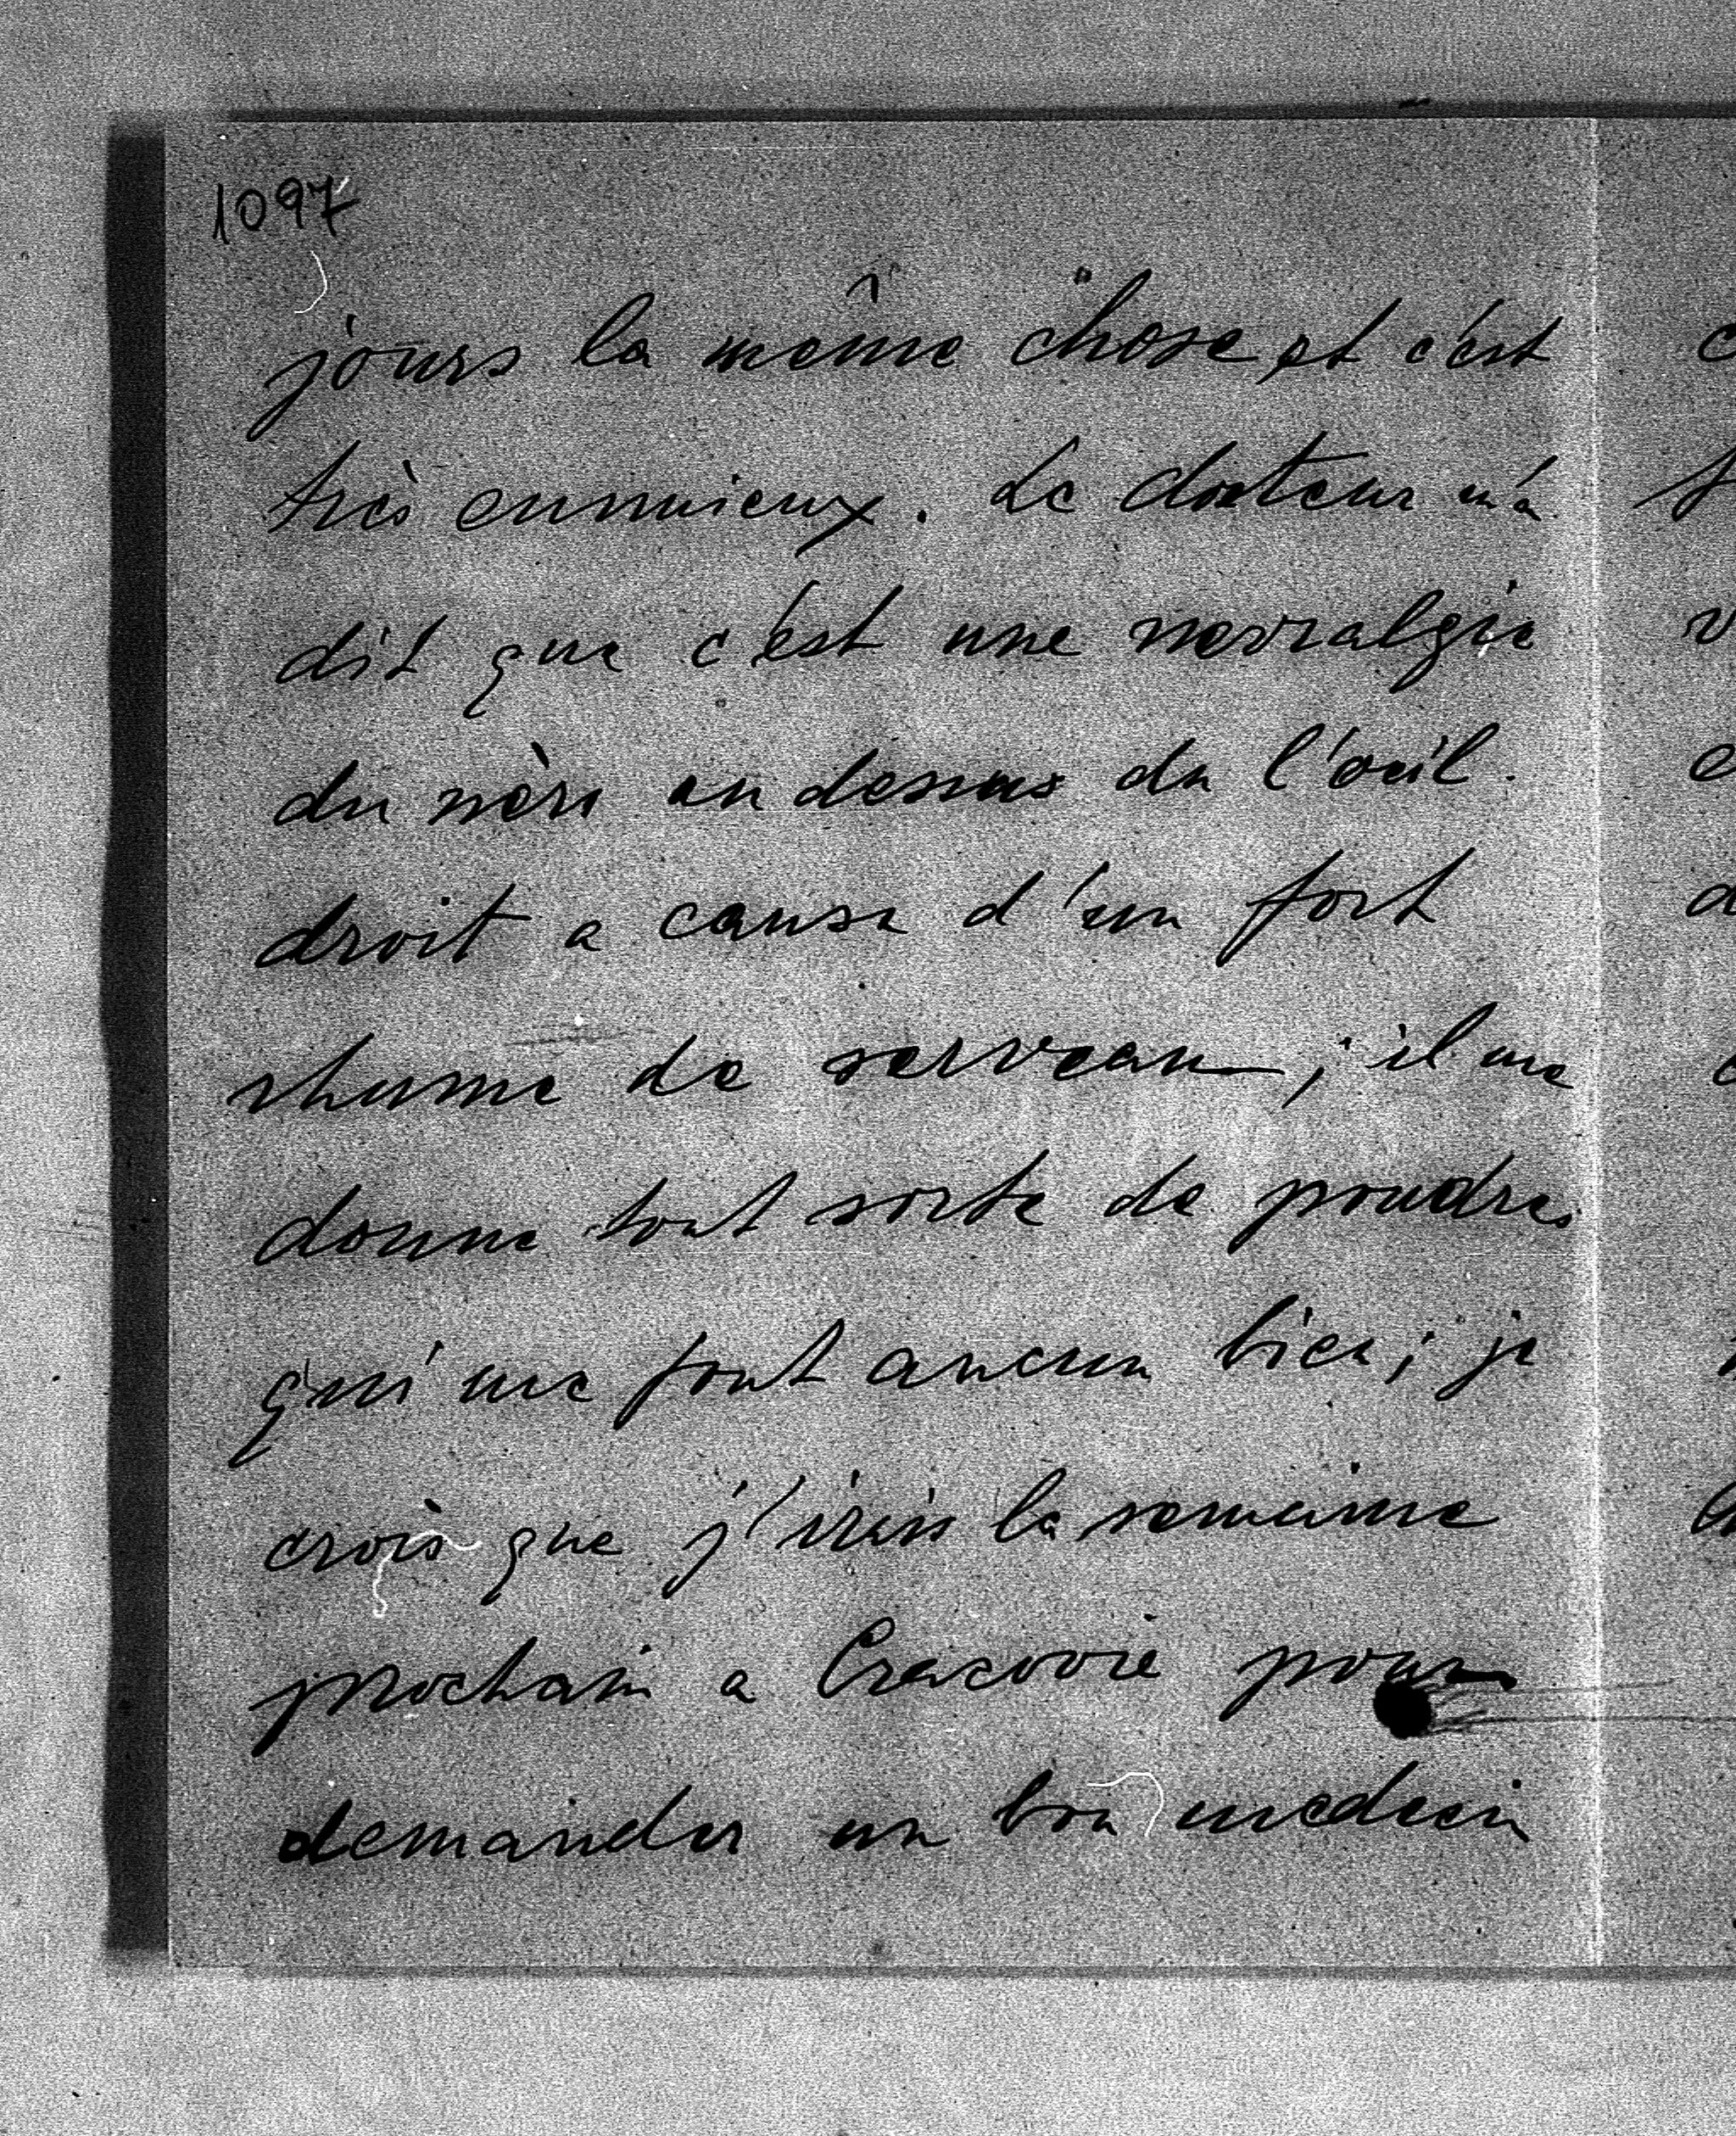 1097
jours la même chose et c'est
très ennuieux. Le docteur m'a
dit que c'est une nevralgie
du nèrf au dessus du l'oeil
droit a cause d'un fort
rhume de serveau; il me
donne tout sorte de poudres
qui me font aucun bien; je
crois que j'irais la semaine
prochain a Cracovie pour
demander un bon medecin